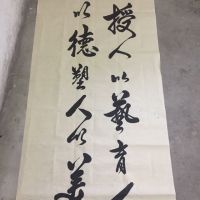 授人以藝育人
以德塑人以美